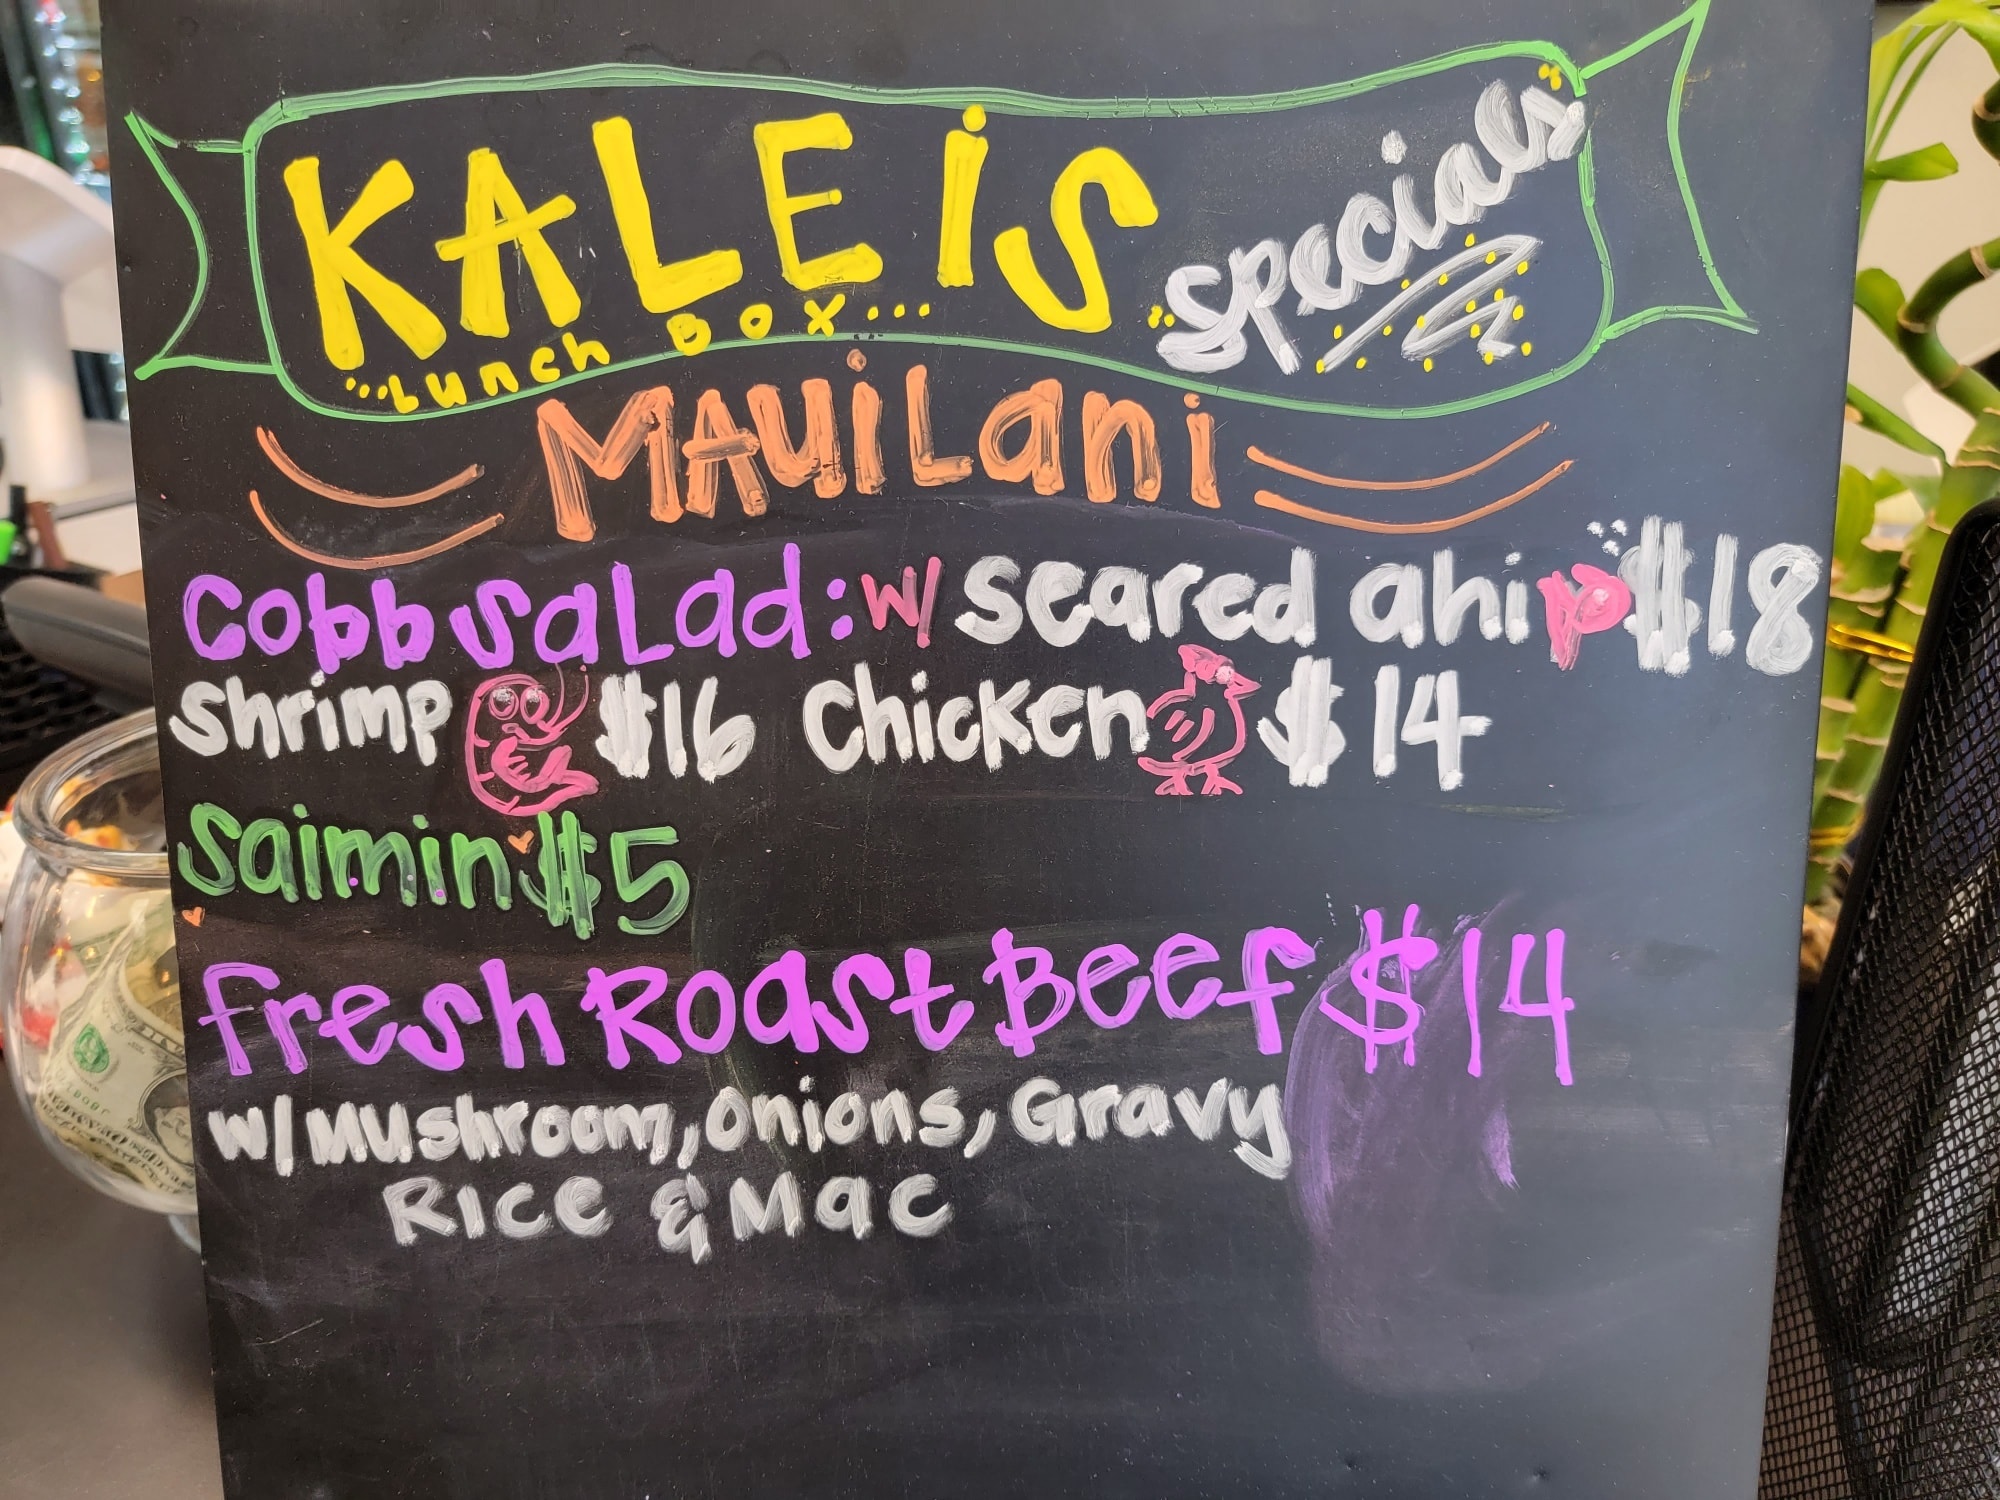 KALEiS
Specials
...Lunch BOX...
MAuiLani
Cobb Salad: w/ Seared ahi $18
Shrimp $16 Chicken $14
Saimin $5
Fresh Roast Beef $14
w/ Mushroom, Onions, Gravy
Rice & Mac